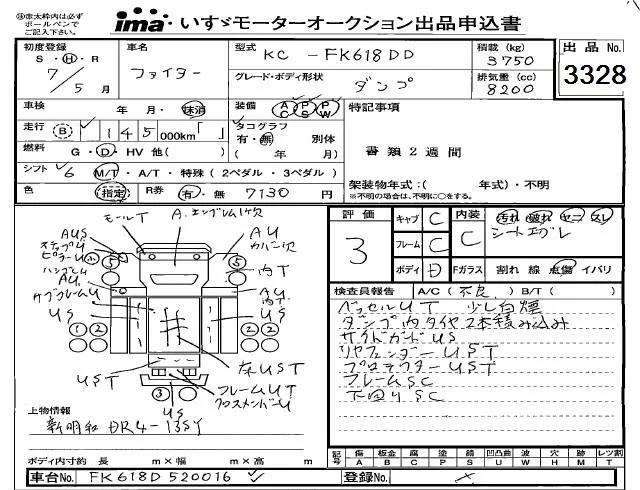 ㊟赤太枠内は必ず
ボールペンで
ご記入下さい。
ima いすゞモーターオークション出品申込書
初度登録 S・H・R 7/5月
車名 ファイター
型式 KC - FK618DD
グレード・ボディ形状 ダンプ
積載(kg) 3750
排気量(cc) 8200
出品No. 3328
車検 年 月・抹消
装備 AC PS PW
特記事項
走行 B 145000km「 」
タコグラフ 有・無 別体 ( 年 月)
書類2週間
燃料 G・D・HV 他( )
シフト 6 M/T・A/T・特殊(2ペダル・3ペダル)
架装物年式:( 年式)・不明
※不明の場合は、不明に○をする。
色 指定 R券 有・無 7130円
評価 3
キャブ C
フレーム C
ボディ D
内装 C
汚れ 破れ ヤニ スレ
シートエグレ
Fガラス 割れ 線 点傷 イバリ
モールT A.エングレムハ欠
AUS
ステップU
ピラーU 小
ハンドルU
AU
サブフレームU
US
5 5
AU
カハン欠
内T
AU
内T
US
2 1 1 2
UST
左UST
フレームUT
クロスメンバーU
3
US
検査員報告 A/C(不良) B/T( )
ベッセルUT 少し白煙
ダンプ内タイヤ2本積み込み
サイドガードUS
リヤフェンダーUST
プロテクターUST
フレームSC
下回りSC
上物情報
新明和 DR4-13SY
ボディ内寸約 長 m×幅 m×高 m
記号 傷A 板金B 腐C 塗P 錆S 凹凸曲U 波W 穴H 跡M レツ割T
車台No. FK618D520016
登録No.